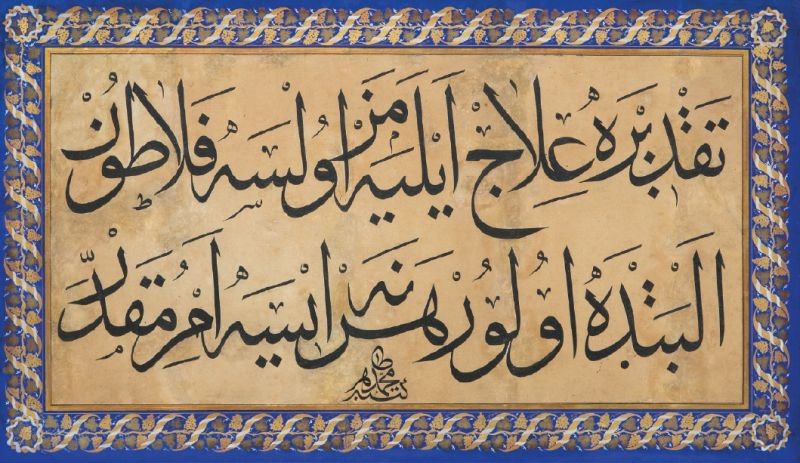 تقدیره علاج ایلیه مز اولسه فلاطون
البتده اولور هر نه ایسه امر مقدر
كتبه محمد طاهر